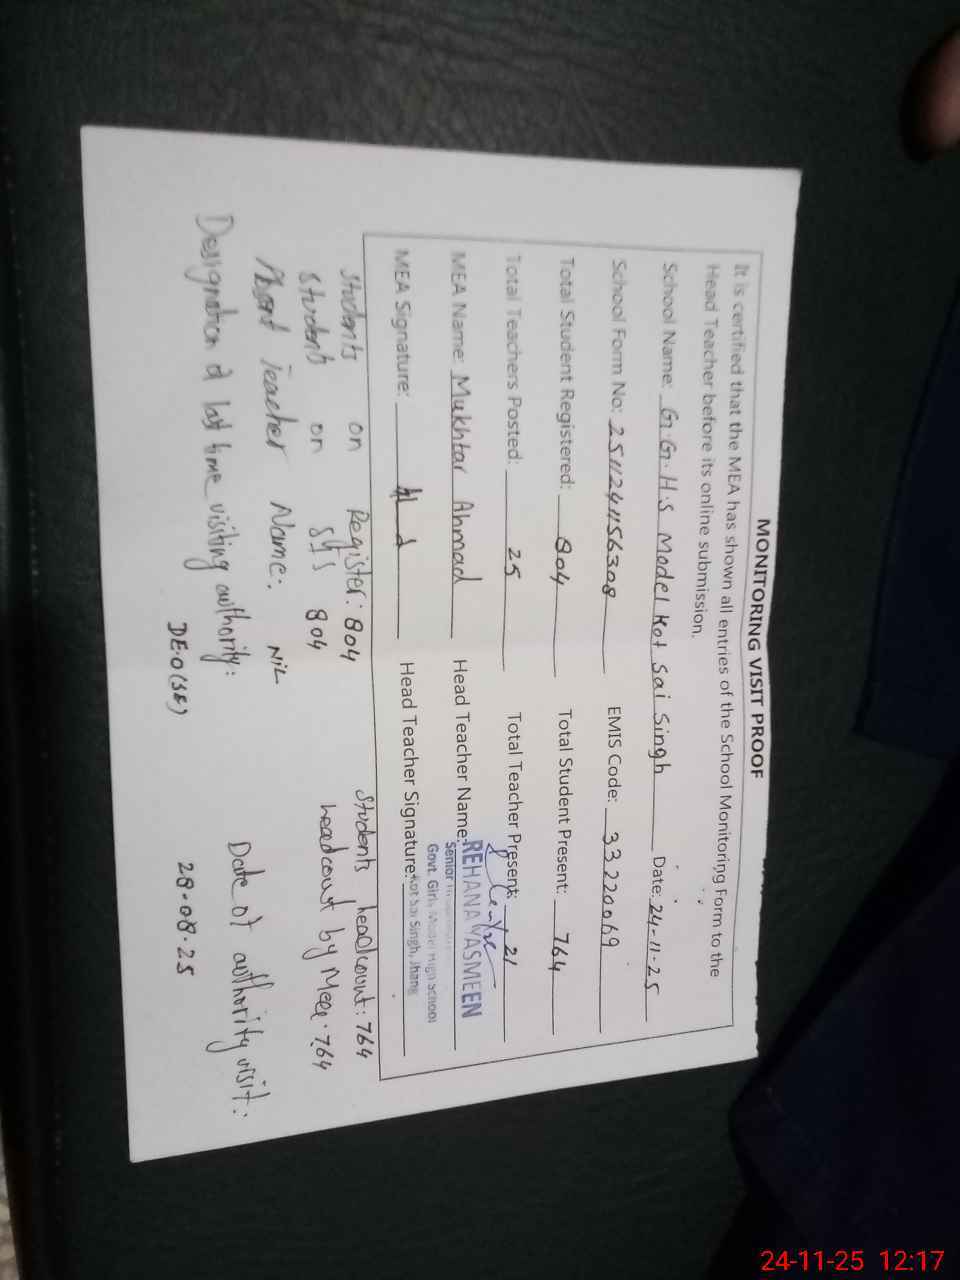 MONITORING VISIT PROOF
It is certified that the MEA has shown all entries of the School Monitoring Form to the
Head Teacher before its online submission.
School Name: G.G.H.S Model Kot Sai Singh Date: 24-11-25
School Form No: EMIS Code: 33220069
Total Student Registered: 804 Total Student Present: 764
Total Teachers Posted: 25 Total Teacher Present: 21
MEA Name: Mukhtar Ahmad Head Teacher Name: REHANA YASMEEN
Senior
Govt. Girls Model High School
MEA Signature: Head Teacher Signature: Kot Sai Singh, Jhang
Students on Register: 804 Students headcount: 764
Students on SIS 804 headcount by Mea: 764
Absent Teacher Name: NIL
Designation of last time visiting authority: Date of authority visit:
DE.O(SE) 28.08.25
24-11-25 12:17